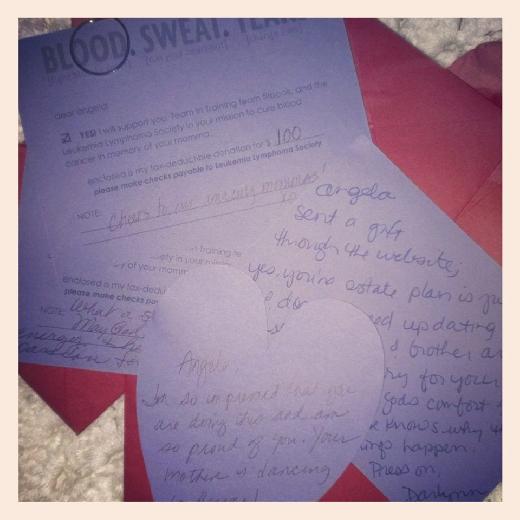 BLOOD. SWEAT. TEARS
dear angela,
YES! I will support you, Team in Training team filbook, and the
Leukemia Lymphoma Society in your mission to cure blood
cancer in memory of your momma.
enclosed is my tax-deductible donation for $ 100
please make checks payable to Leukemia Lymphoma Society
NOTE: Cheers to our amazing mommas!
in training te
ety in your missi
y of your momm
enclosed is my tax-deduc
please make checks pay
NOTE: What a
May God
energy
Angela
sent a gift
through the website,
yes, you're estate plan is
ed updating
d brother
for your
gods comfort
knows why
ings happen.
Press on,
Darlynn
Angela,
I'm so impressed that you
are doing this and am
so proud of you. Your
mother is dancing